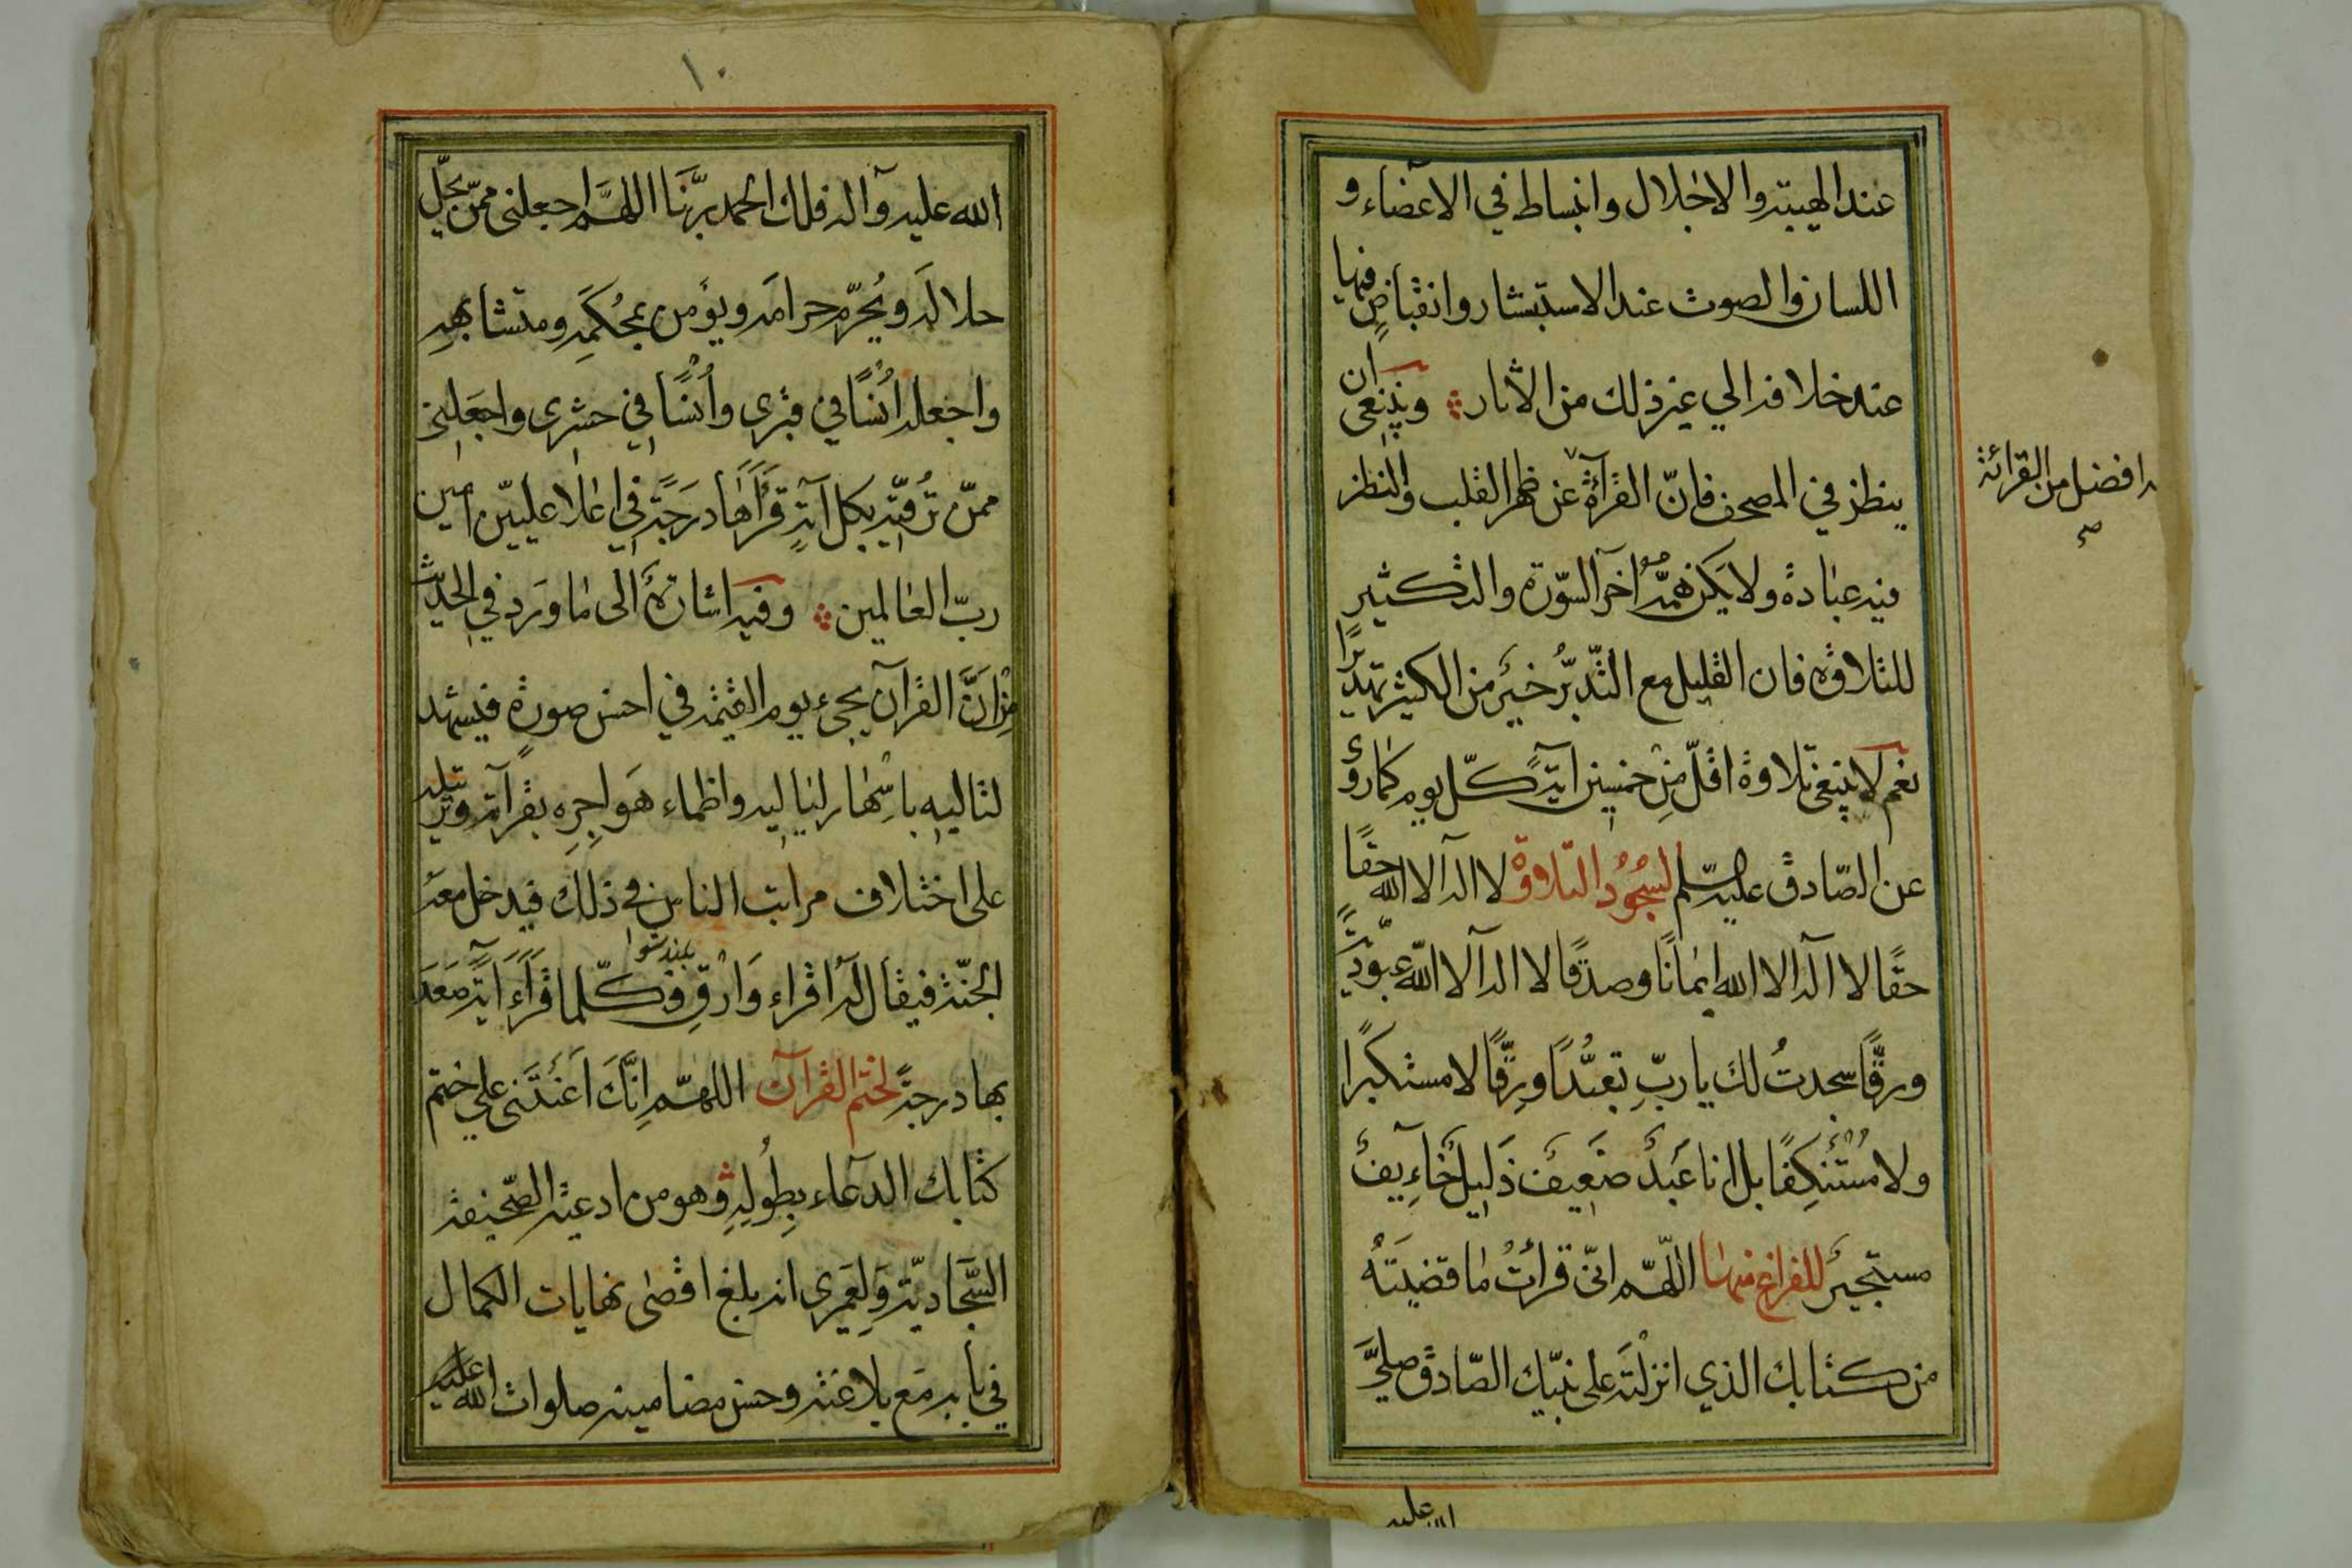 عند الهيبة والاجلال وانبساط في الاعضاء و
اللسان والصوت عند الاستبشار وانقباضٍ فيها
عند خلافه الي غير ذلك من الاثار وينبغي ان
ينظر في المصحف فانّ القرآءة عن ظهر القلب والنظر
ه افضل من القرائة
صح
فيه عبادة ولا يكن همّه اخر السّورة والتكثير
للتلاوة فان القليل مع التّدبّر خير من الكثير تهذّرًا
نعم لا ينبغي تلاوة اقلّ مِن خمسين ايةً كلّ يوم كما روي
عن الصّادق عليه السّلم لسجود التلاوة لا اله الا الله حقّا
حقّا لا اله الا الله ايمانًا وصدقًا لا اله الا الله عبوديّةً
ورقًّا سجدتُ لك يا ربّ تعبّدًا ورقّا لا مستكبرًا
ولا مُستَنكِفًا بل انا عَبدٌ ضَعِيفٌ ذَلِيلٌ خَاءِيفٌ
مستجيرٌ للفراغ منها اللّهّم انّي قرأتُ ما قضيتَهُ
من كتابك الذي انزلْتَه على نبيّك الصّادق صلّي
الله عليه
١٠
الله عليه وآله فلك الحمد ربَّنَا اللهمَّ اجعلني ممّن يحلّ
حلالَه ويُحرّم حرامَه ويؤمن بمُحكَمِه ومتشابهِه
واجعله اُنسًا في قبري واُنسًا في حشري واجعَلنِي
ممّن تُرقّيه بكل آيةٍ قَرَأَها دَرَجَةً في اعلا عليّين امين
ربّ العالمين وفيه اشارةٌ الى ما وَرَد في الحديث
مِن انَّ القرآن يجيء يوم القيمة في احسن صورة فيشهد
لتاليه باسْهار لياليه واظماء هَواجِرِه بقرآته وترتيله
على اختلاف مراتب الناس في ذلك فيدخل معه
الجنّة فيقال له اقراء وَارْقِ وكلّما قَرَأَ آيةً صَعَدَ
بلند شو
بها درجةً لختم القرآن اللهّم اِنَّكَ اَعَنْتَني علي ختم
كتابك الدعآء بِطُولِهِ وهو من ادعية الصّحيفة
السّجّاديّة وَلِعَمري انه بلغ اقصٰى نهايات الكمال
في بابه مَع بلاغته وحسن مضامينه صلوات الله عليه